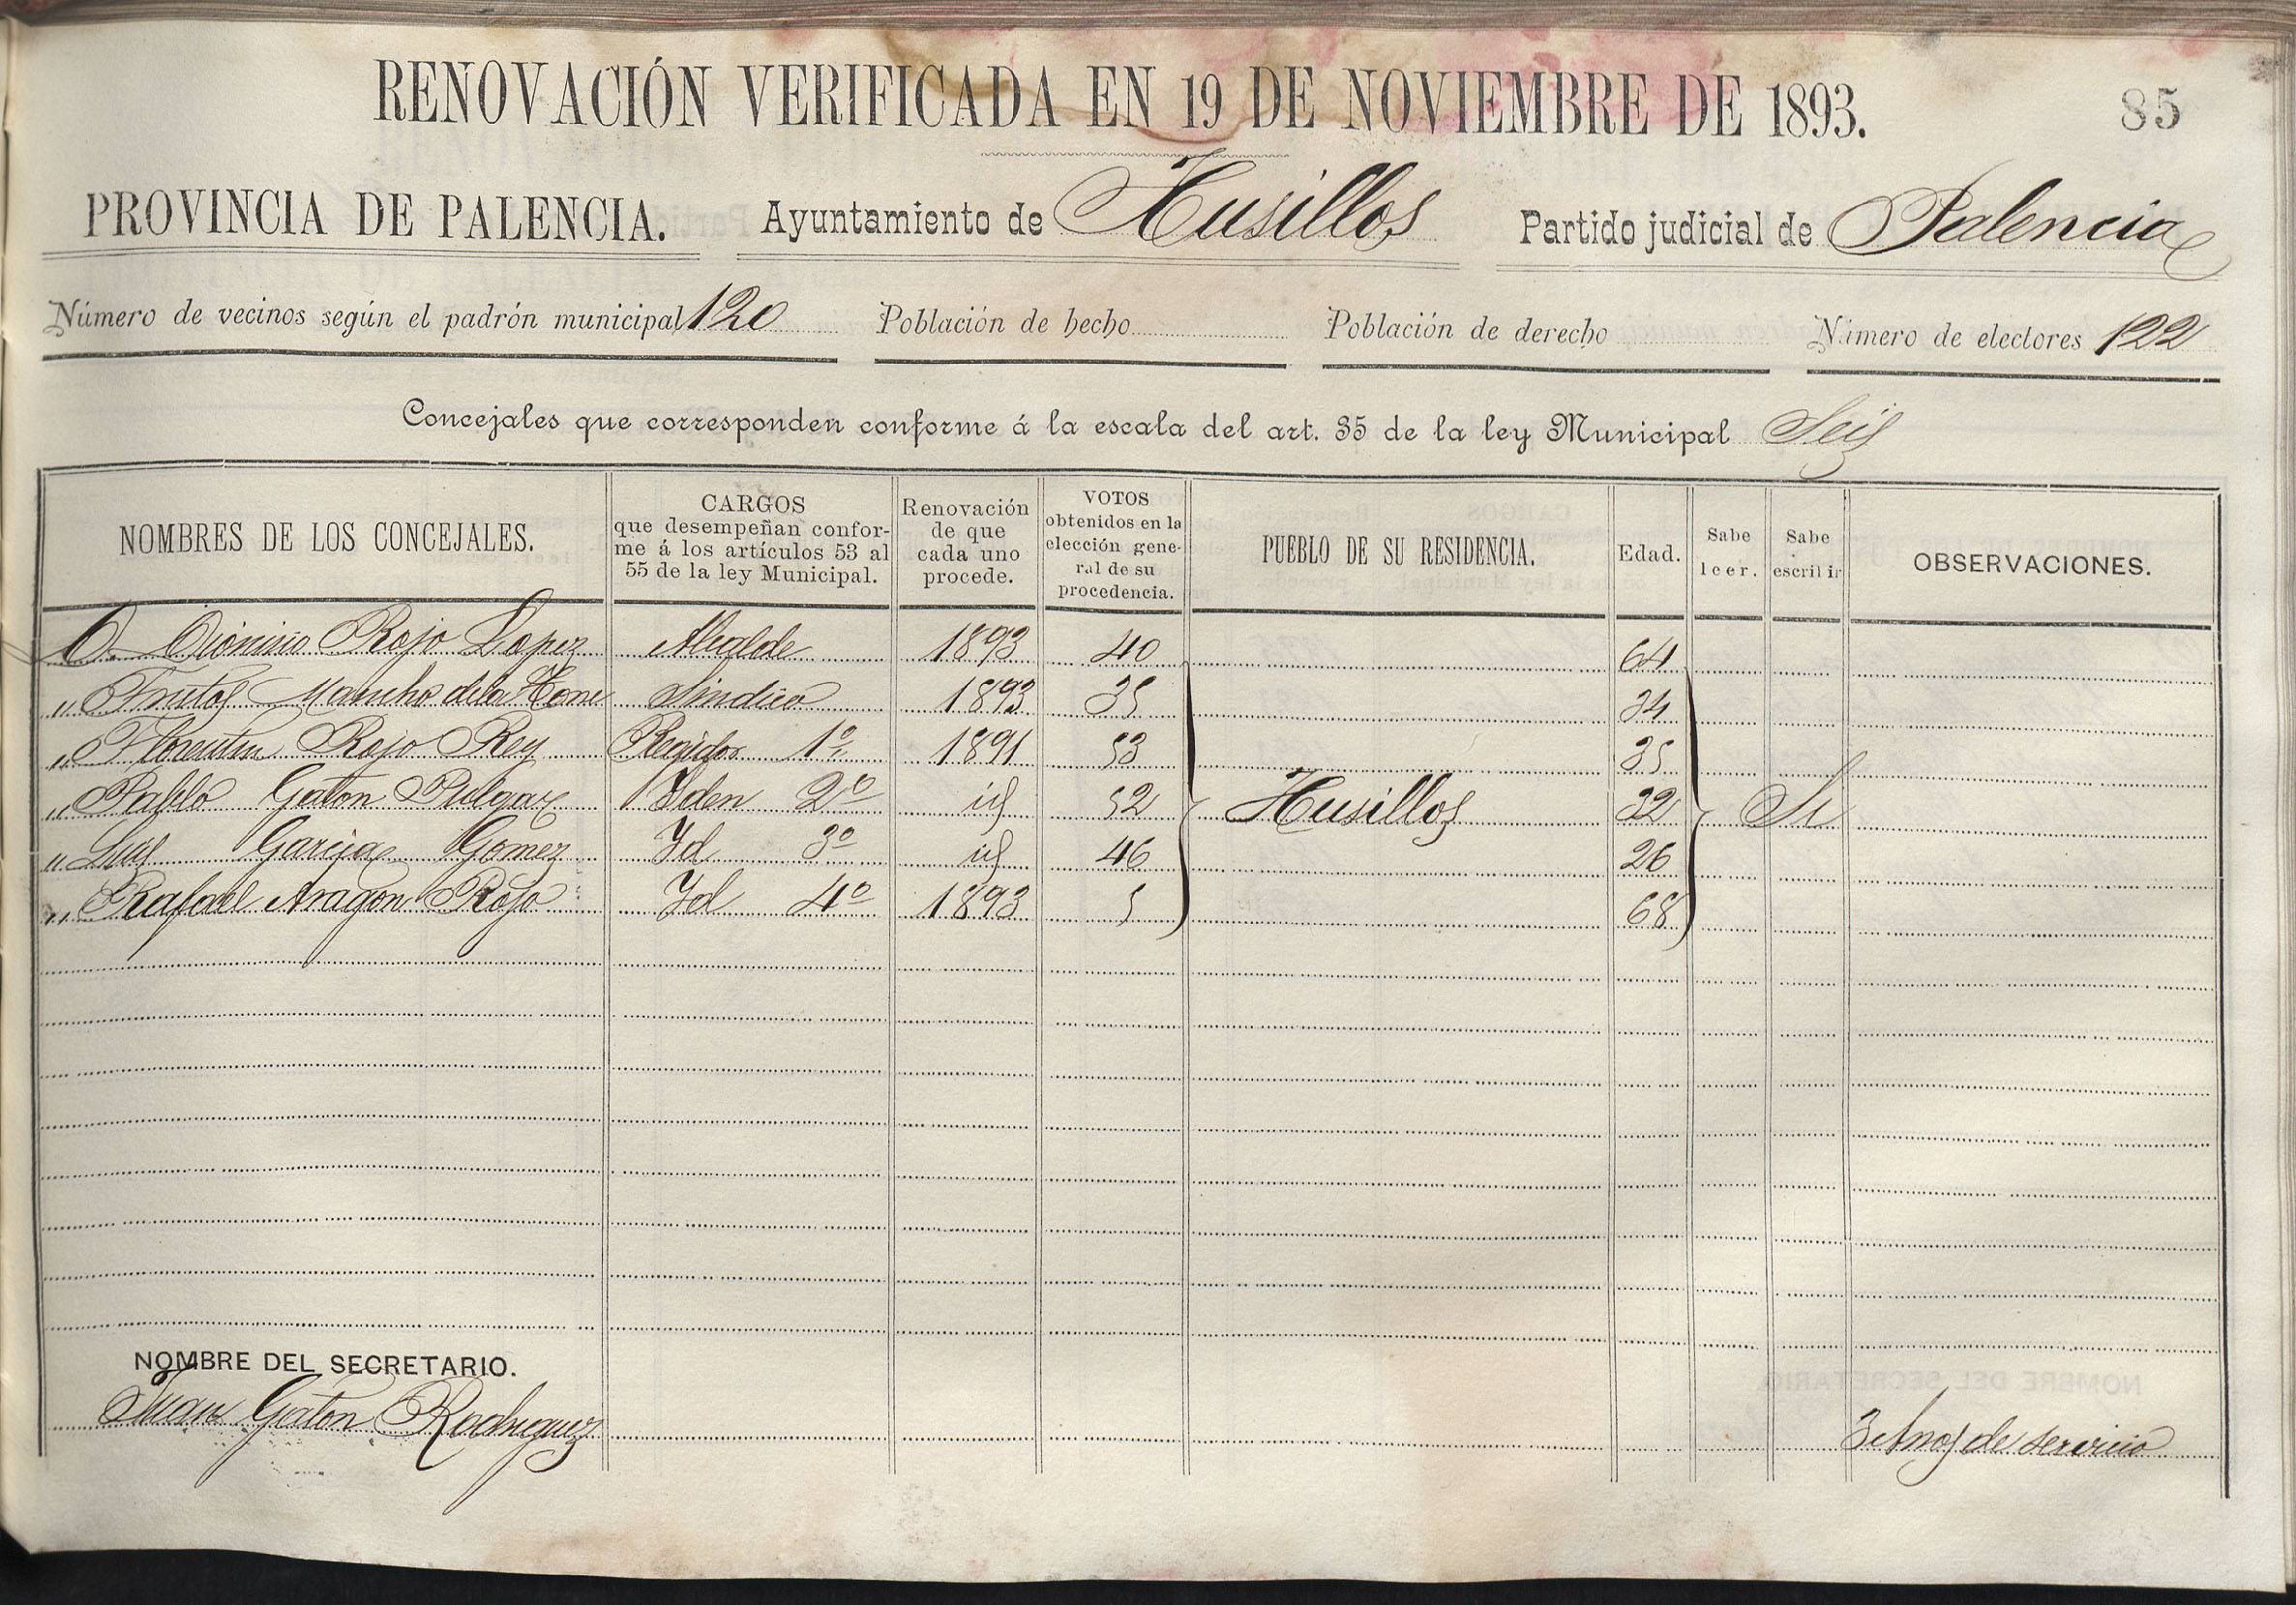 RENOVACIÓN VERIFICADA EN 19 DE NOVIEMBRE DE 1893.
85
PROVINCIA DE PALENCIA. Ayuntamiento de Husillos Partido judicial de Palencia
Número de vecinos según el padrón municipal 120 Población de hecho Población de derecho Número de electores 122
Concejales que corresponden conforme á la escala del art. 35 de la ley Municipal Seis
NOMBRES DE LOS CONCEJALES.
CARGOS
que desempeñan confor-
me á los artículos 53 al
55 de la ley Municipal.
Renovación
de que
cada uno
procede.
VOTOS
obtenidos en la
elección gene-
ral de su
procedencia.
PUEBLO DE SU RESIDENCIA.
Edad.
Sabe
leer.
Sabe
escribir
OBSERVACIONES.
D. Dionisio Rojo Lopez Alcalde 1893 40 64
" Frutos Mancho de la Sindico 1893 35 34
" Florentin Rojo Rey Regidor 1º 1891 53 35
" Pablo Gaton Pulgar Iden 2º id 52 Husillos 32 Si
" Luis Garcia Gomez Id 3º id 46 26
" Rafael Aragon Rojo Id 4º 1893 5 68
NOMBRE DEL SECRETARIO.
Juan Gaton Rodriguez 3 Años de servicio